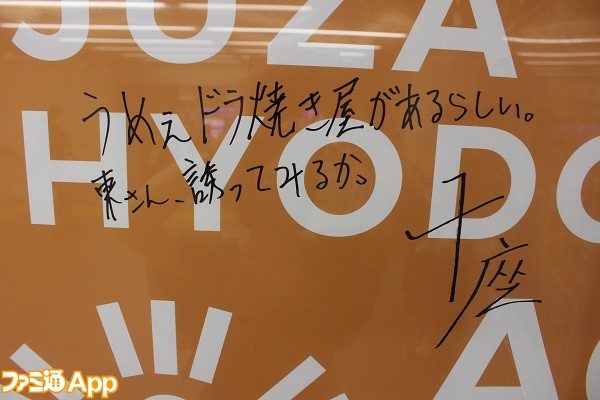 JUZA
うめぇドラ焼き屋があるらしい。
HYODO
東さん、誘ってみるか。
十座
A
ファミ通App